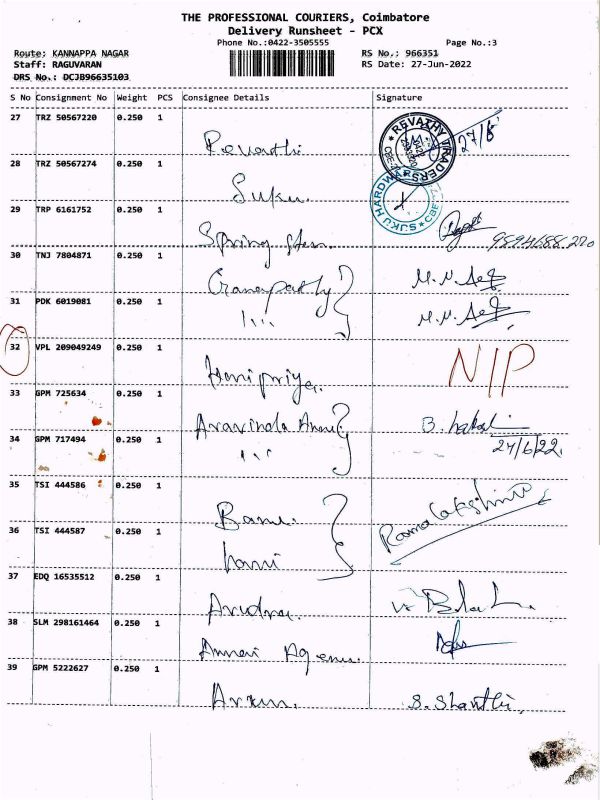 THE PROFESSIONAL COURIERS, Coimbatore
Delivery Runsheet - PCX
Phone No.:0422-3505555 Page No.:3
Route: KANNAPPA NAGAR RS No.: 966351
Staff: RAGUVARAN RS Date: 27-Jun-2022
DRS No.: DCJB96635103
S No Consignment No Weight PCS Consignee Details Signature
27 TRZ 50567220 0.250 1
Revathi REVATHY TRADERS 27/6
28 TRZ 50567274 0.250 1
Suku. SUKU HARDWARES
29 TRP 6161752 0.250 1
Spring
30 TNJ 7804871 0.250 1
Ganapathy M.N.
31 PDK 6019081 0.250 1
M.N.
32 VPL 209049249 0.250 1
Haripriya. N/P
33 GPM 725634 0.250 1
Aravinda B.
34 GPM 717494 0.250 1
35 TSI 444586 0.250 1
Ramalakshmi
36 TSI 444587 0.250 1
37 EDQ 16535512 0.250 1
38 SLM 298161464 0.250 1
Annai
39 GPM 5222627 0.250 1
Arun. S. Shanthi,